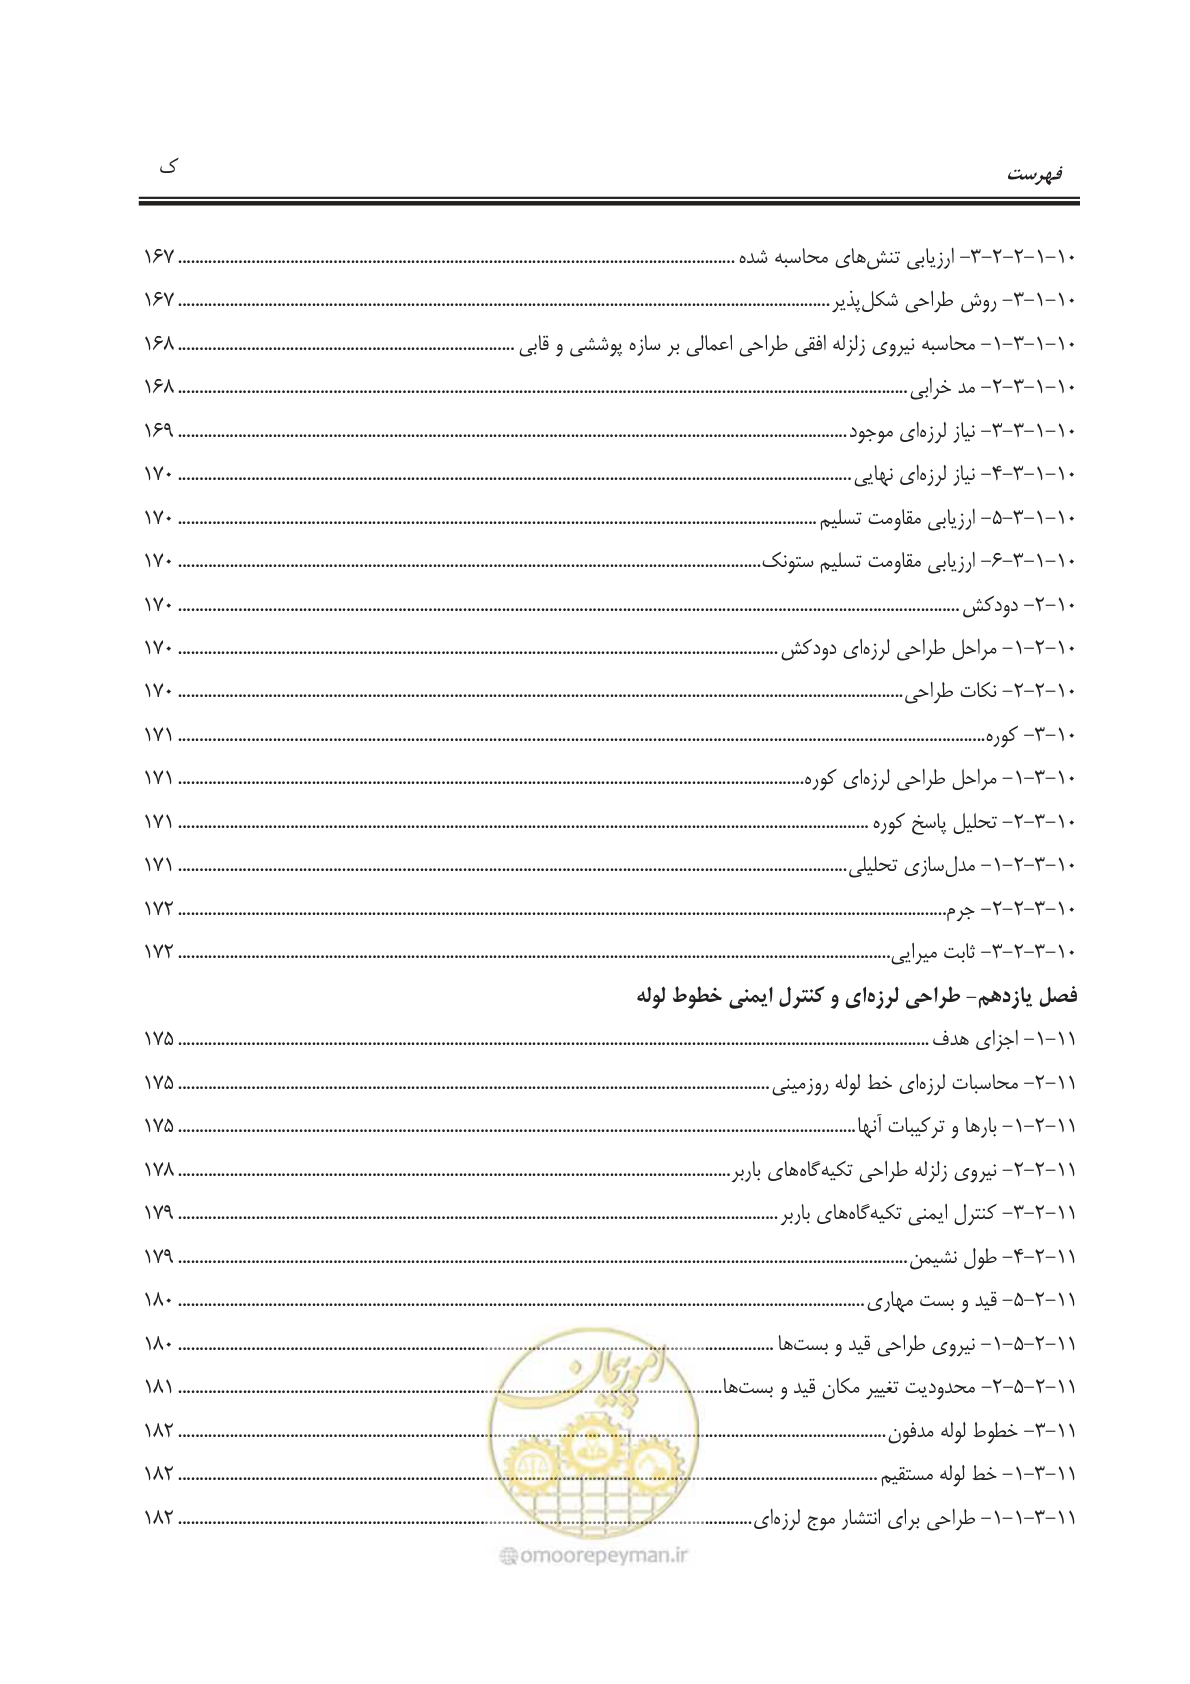 فهرست ک
۱۰-۱-۲-۲-۳- ارزیابی تنش‌های محاسبه شده ........ ۱۶۷
۱۰-۱-۳- روش طراحی شکل‌پذیر ........ ۱۶۷
۱۰-۱-۳-۱- محاسبه نیروی زلزله افقی طراحی اعمالی بر سازه پوششی و قابی ........ ۱۶۸
۱۰-۱-۳-۲- مد خرابی ........ ۱۶۸
۱۰-۱-۳-۳- نیاز لرزه‌ای موجود ........ ۱۶۹
۱۰-۱-۳-۴- نیاز لرزه‌ای نهایی ........ ۱۷۰
۱۰-۱-۳-۵- ارزیابی مقاومت تسلیم ........ ۱۷۰
۱۰-۱-۳-۶- ارزیابی مقاومت تسلیم ستونک ........ ۱۷۰
۱۰-۲- دودکش ........ ۱۷۰
۱۰-۲-۱- مراحل طراحی لرزه‌ای دودکش ........ ۱۷۰
۱۰-۲-۲- نکات طراحی ........ ۱۷۰
۱۰-۳- کوره ........ ۱۷۱
۱۰-۳-۱- مراحل طراحی لرزه‌ای کوره ........ ۱۷۱
۱۰-۳-۲- تحلیل پاسخ کوره ........ ۱۷۱
۱۰-۳-۲-۱- مدل‌سازی تحلیلی ........ ۱۷۱
۱۰-۳-۲-۲- جرم ........ ۱۷۲
۱۰-۳-۲-۳- ثابت میرایی ........ ۱۷۲
فصل یازدهم- طراحی لرزه‌ای و کنترل ایمنی خطوط لوله
۱۱-۱- اجزای هدف ........ ۱۷۵
۱۱-۲- محاسبات لرزه‌ای خط لوله روزمینی ........ ۱۷۵
۱۱-۲-۱- بارها و ترکیبات آنها ........ ۱۷۵
۱۱-۲-۲- نیروی زلزله طراحی تکیه‌گاه‌های باربر ........ ۱۷۸
۱۱-۲-۳- کنترل ایمنی تکیه‌گاه‌های باربر ........ ۱۷۹
۱۱-۲-۴- طول نشیمن ........ ۱۷۹
۱۱-۲-۵- قید و بست مهاری ........ ۱۸۰
۱۱-۲-۵-۱- نیروی طراحی قید و بست‌ها ........ ۱۸۰
۱۱-۲-۵-۲- محدودیت تغییر مکان قید و بست‌ها ........ ۱۸۱
۱۱-۳- خطوط لوله مدفون ........ ۱۸۲
۱۱-۳-۱- خط لوله مستقیم ........ ۱۸۲
۱۱-۳-۱-۱- طراحی برای انتشار موج لرزه‌ای ........ ۱۸۲
امور پیمان
@omoorepeyman.ir